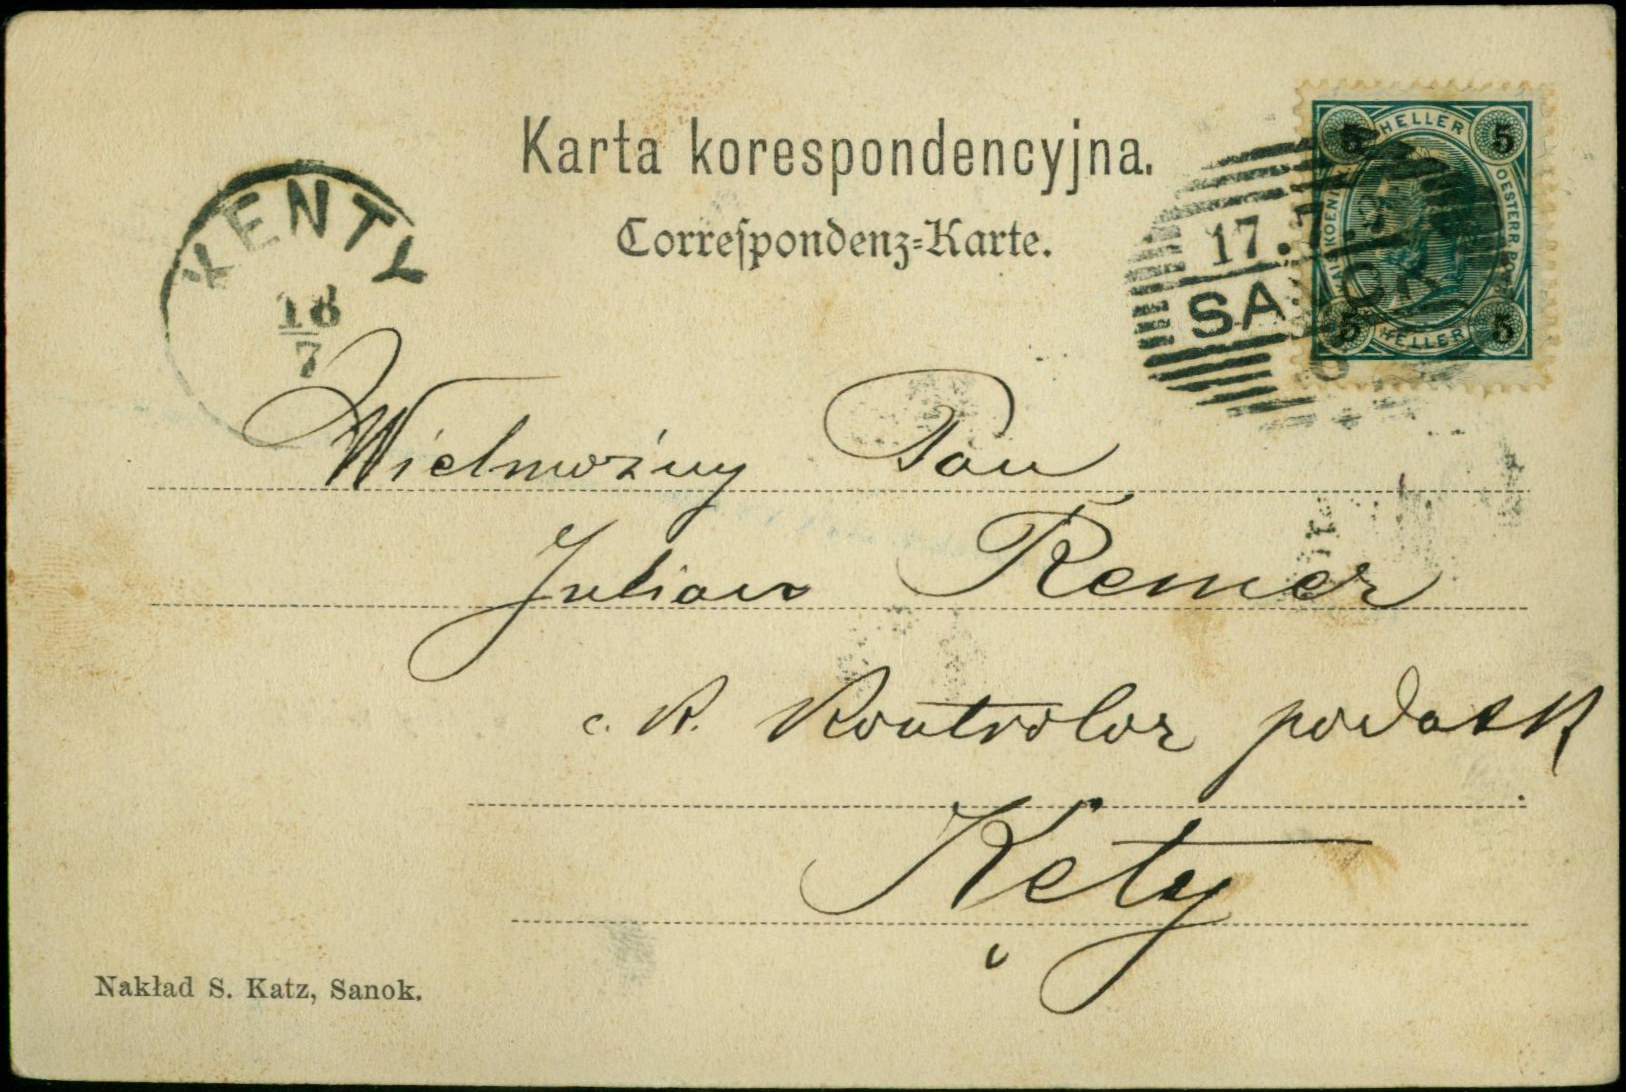 Karta korespondencyjna.
Correſpondenz=Karte.
KENTY
18
7
17.
SA OK
5 HELLER 5
5 HELLER 5
Wielmożny Pan
Julian Remer
c. k. Kontrolor podatk
Kęty
Nakład S. Katz, Sanok.